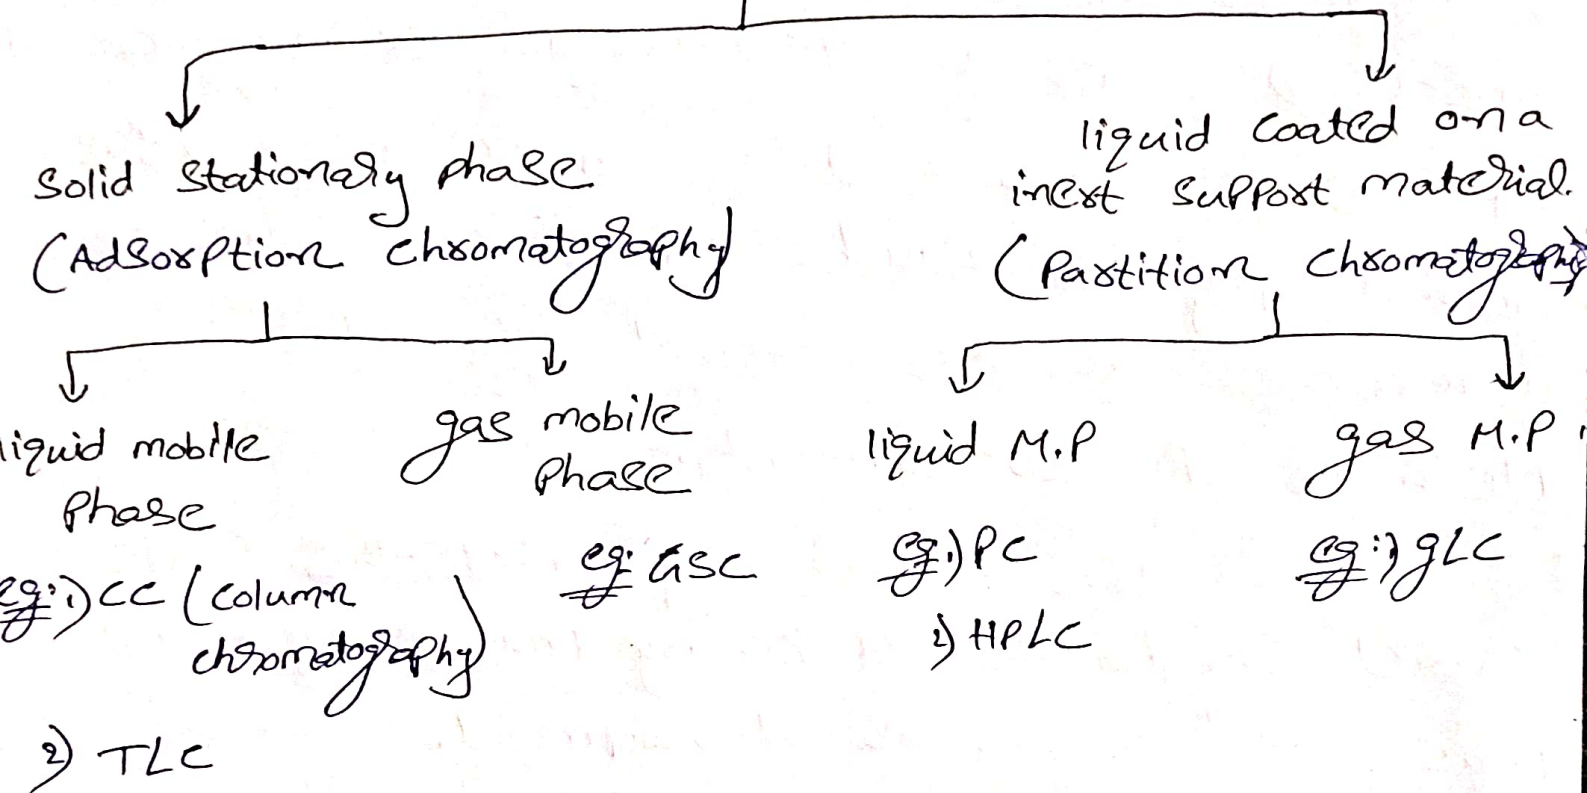 Solid Stationary phase
(Adsorption chromatography)
liquid mobile
Phase
eg: 1) CC (column
chromatography)
2) TLC
gas mobile
Phase
eg: GSC
liquid coated on a
inert support material.
(Partition chromatography)
liquid M.P
eg: 1) PC
2) HPLC
gas M.P
eg: 1) gLC